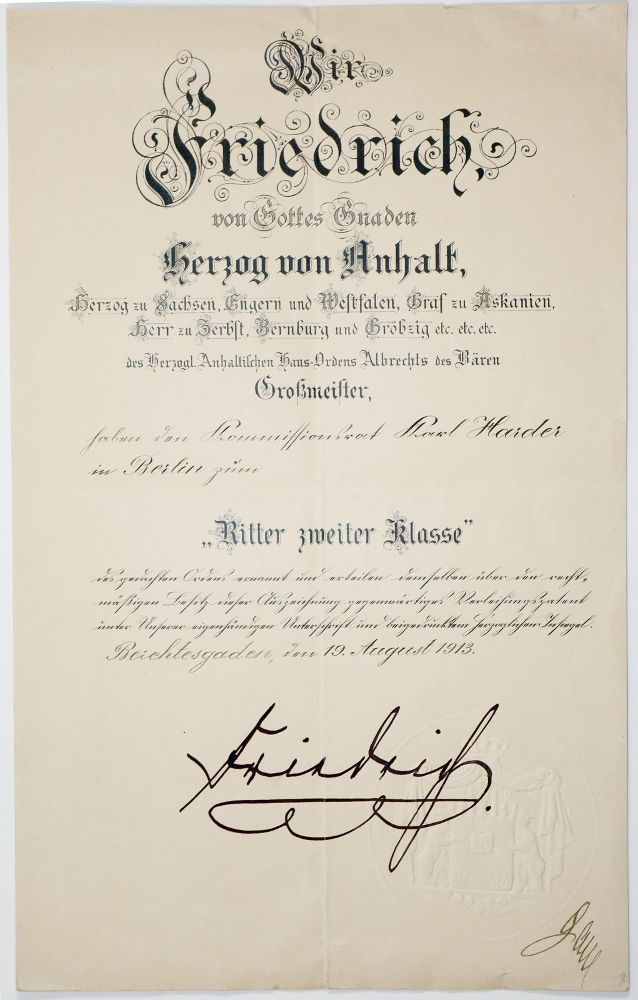 Wir
Friedrich,
von Gottes Gnaden
Herzog von Anhalt,
Herzog zu Sachsen, Engern und Westfalen, Graf zu Askanien,
Herr zu Zerbst, Bernburg und Gröbzig etc. etc. etc.
des Herzogl. Anhaltischen Haus-Ordens Albrechts des Bären
Großmeister,
haben den Kommissionsrat Karl Harder
in Berlin zum
„Ritter zweiter Klasse”
des gedachten Ordens ernannt und erteilen demselben über den recht-
mäßigen Besitz dieser Auszeichnung gegenwärtiges Verleihungspatent
unter Unserer eigenhändigen Unterschrift und beigedrücktem Herzoglichen Insiegel.
Berchtesgaden, den 19. August 1913.
Friedrich.